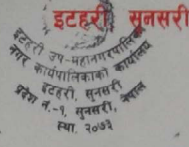 इटहरी सुनसरी
इटहरी उप-महानगरपालिका
नगर कार्यपालिकाको कार्यालय
इटहरी, सुनसरी
प्रदेश नं.-१, सुनसरी, नेपाल
स्था. २०७३